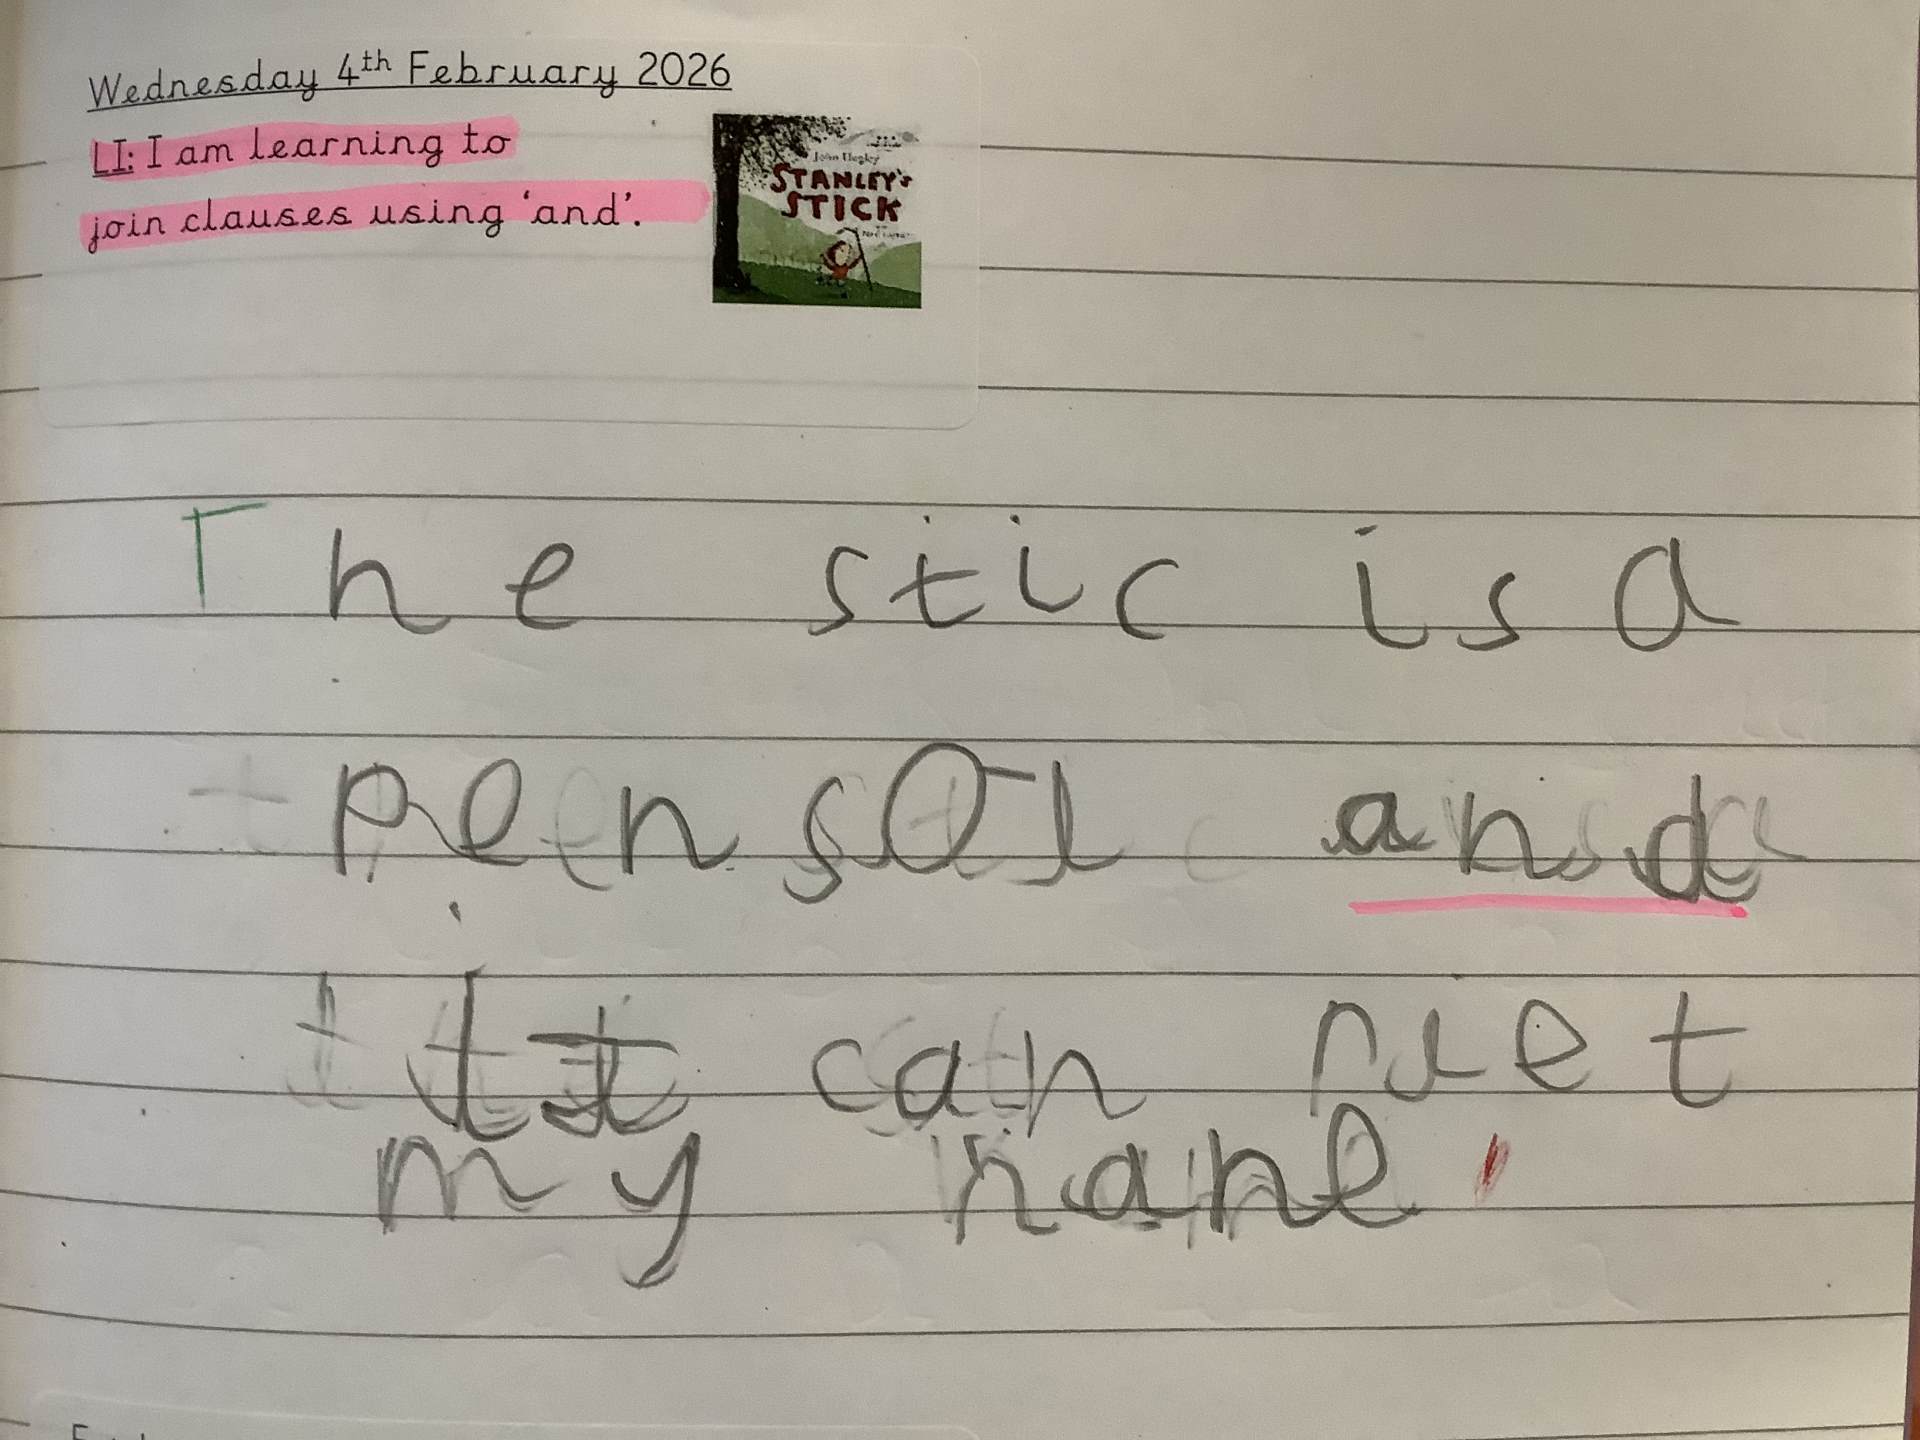 Wednesday 4th February 2026
LI: I am learning to
join clauses using ‘and’.
John Hegley
STANLEY'S
STICK
The stic is a
pensol and
it can riet
my nane.